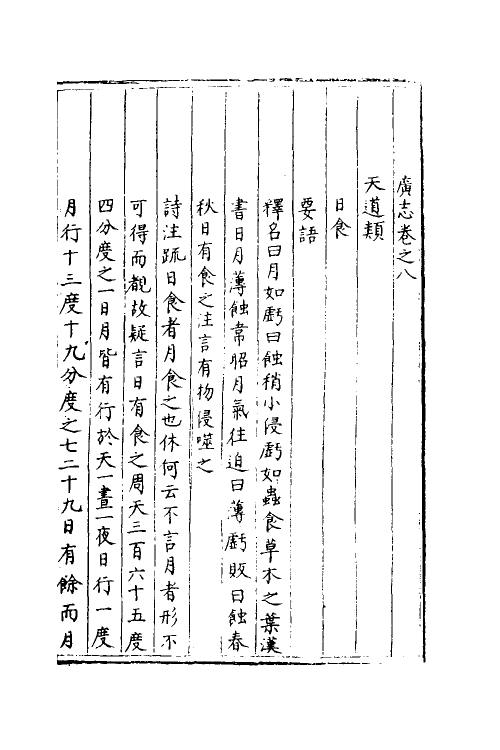 廣志卷之八
天道類
日食
要語
釋名曰月如虧曰蝕稍小侵虧如蟲食草木之葉漢
書日月薄蝕韋昭月氣往迫曰薄虧敗曰蝕春
秋日有食之注言有物侵噬之
詩注疏日食者月食之也休何云不言月者形不
可得而覩故疑言日有食之周天三百六十五度
四分度之一日月皆有行於天一晝一夜日行一度
月行十三度十九分度之七二十九日有餘而月